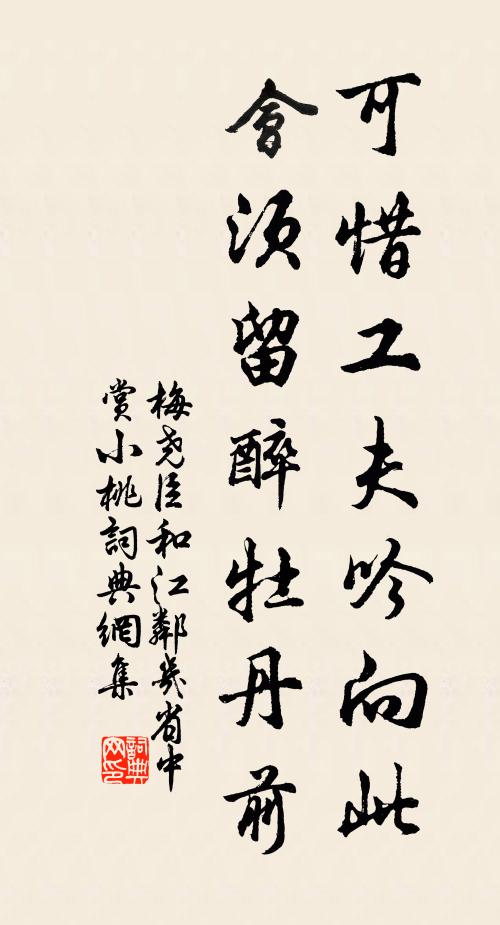 可惜工夫吟向此
會須留醉牡丹前
梅堯臣和江鄰幾省中
賞小桃詞典網集
詞典网印